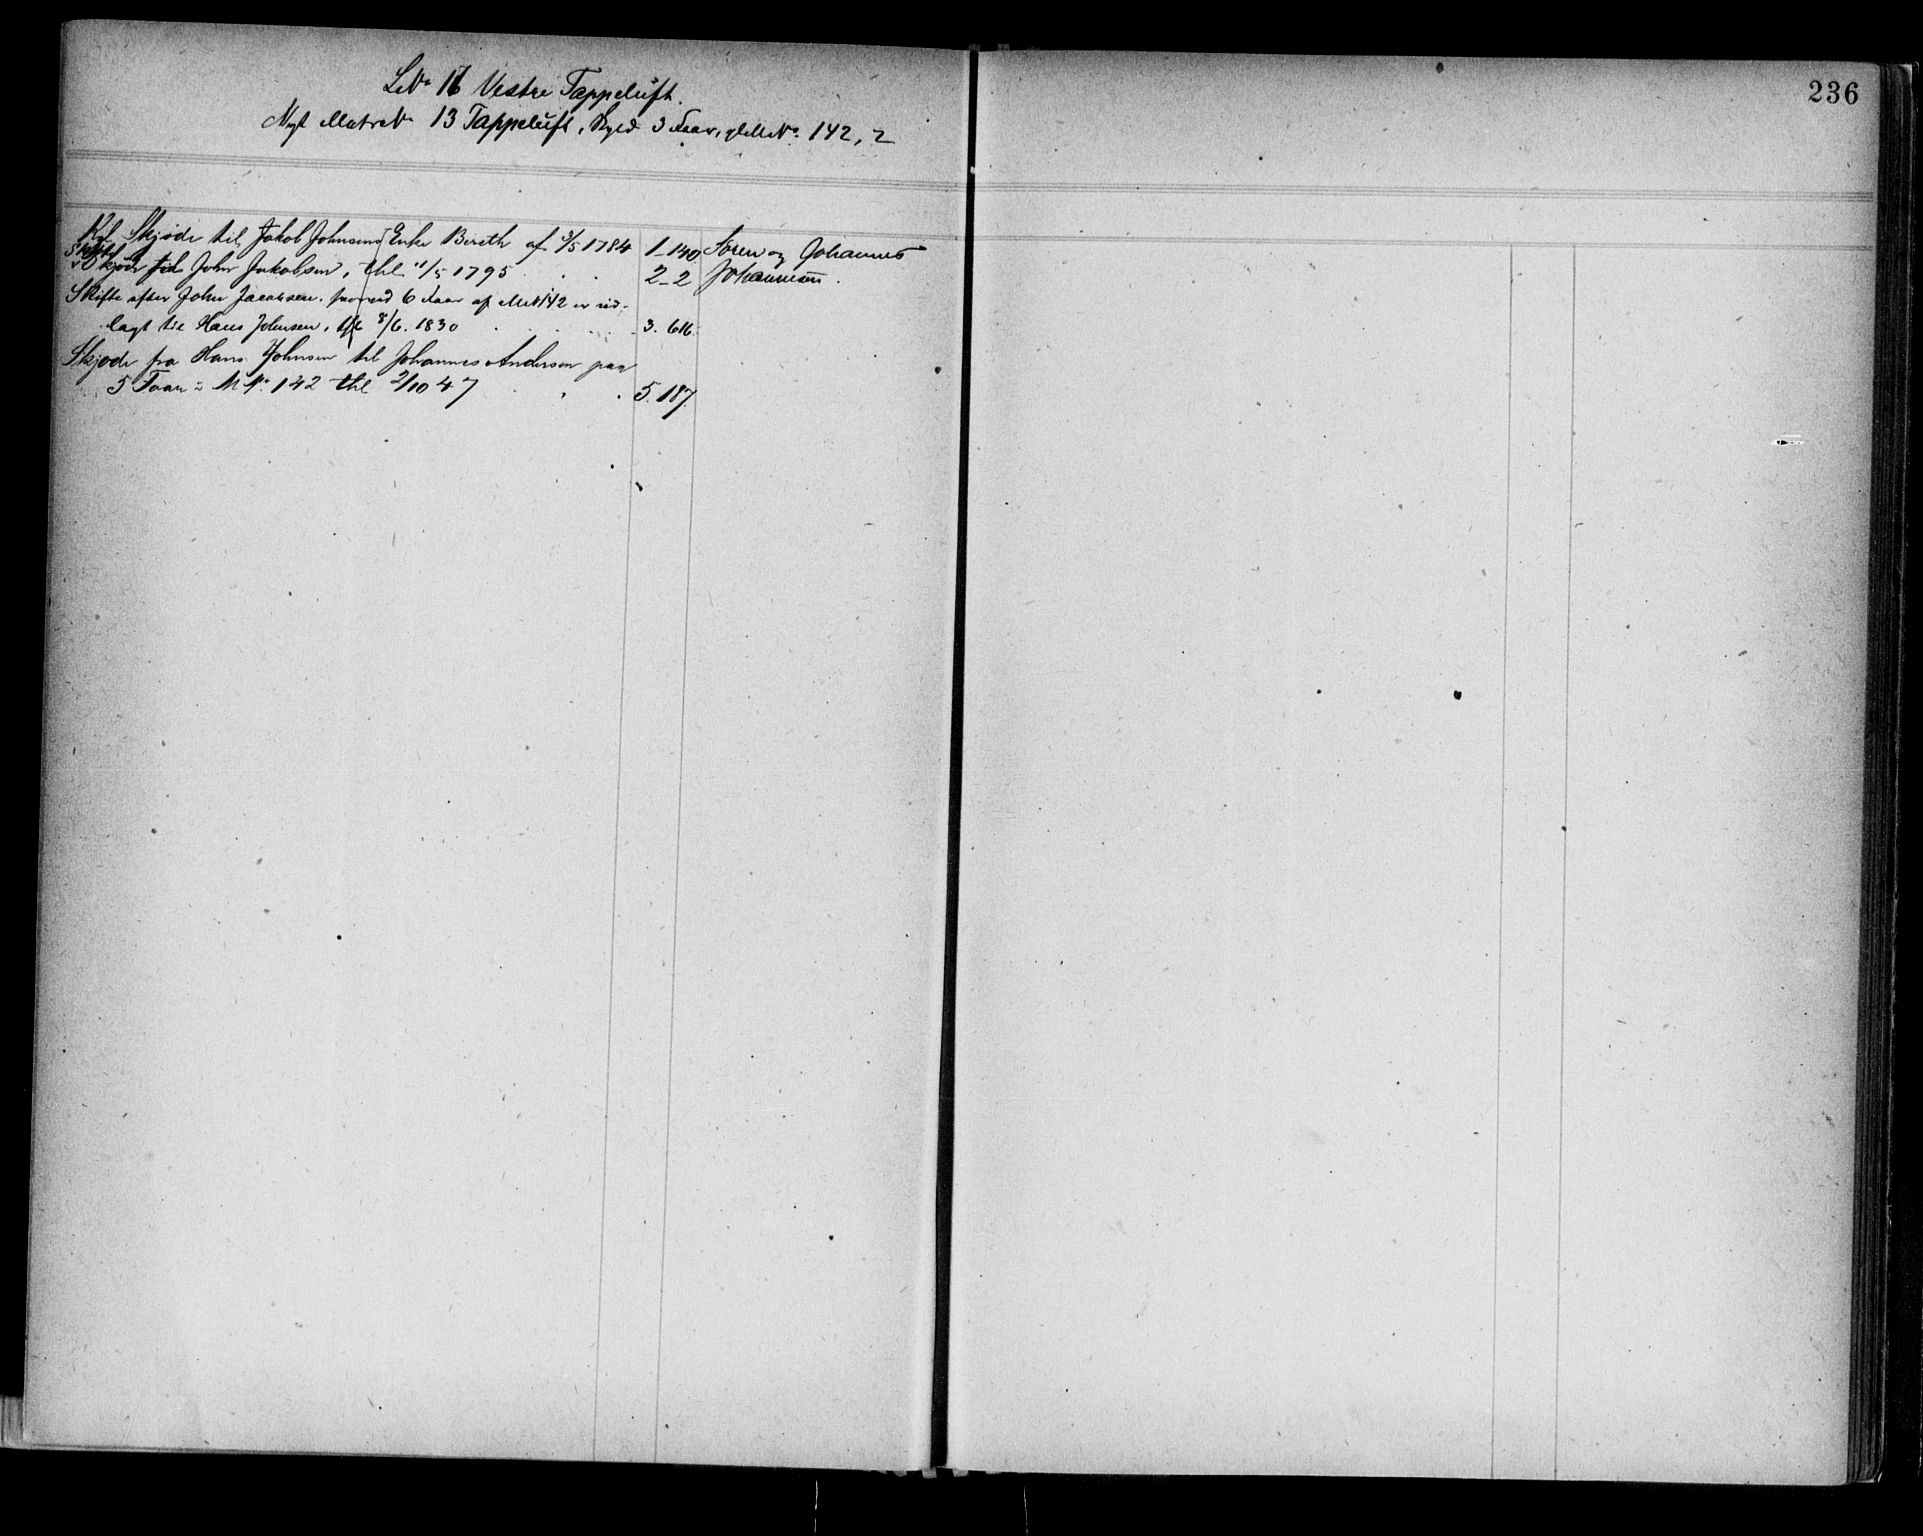 236
LNo 16 Vestre Tappeluft.
Nyt MatrNo 13 Tappeluft, Skyld 3 Faar, glMNo 142, 2
Kgl. Skjøde til Jakob Johnsens Enke Bereth af 3/5 1784 1-140 Søren og Johannes
Skjøde til John Jakobsen, thl. 11/5 1795 2-2 Johannesen.
Skifte efter John Jacobsen, hvorved 6 Faar af MNo 142 er ud-
lagt til Hans Johnsen, 8/6. 1830 3. 616.
Skjøde fra Hans Johnsen til Johannes Andersen paa
5 Faar i M No. 142 thl 9/10 47 5. 187.